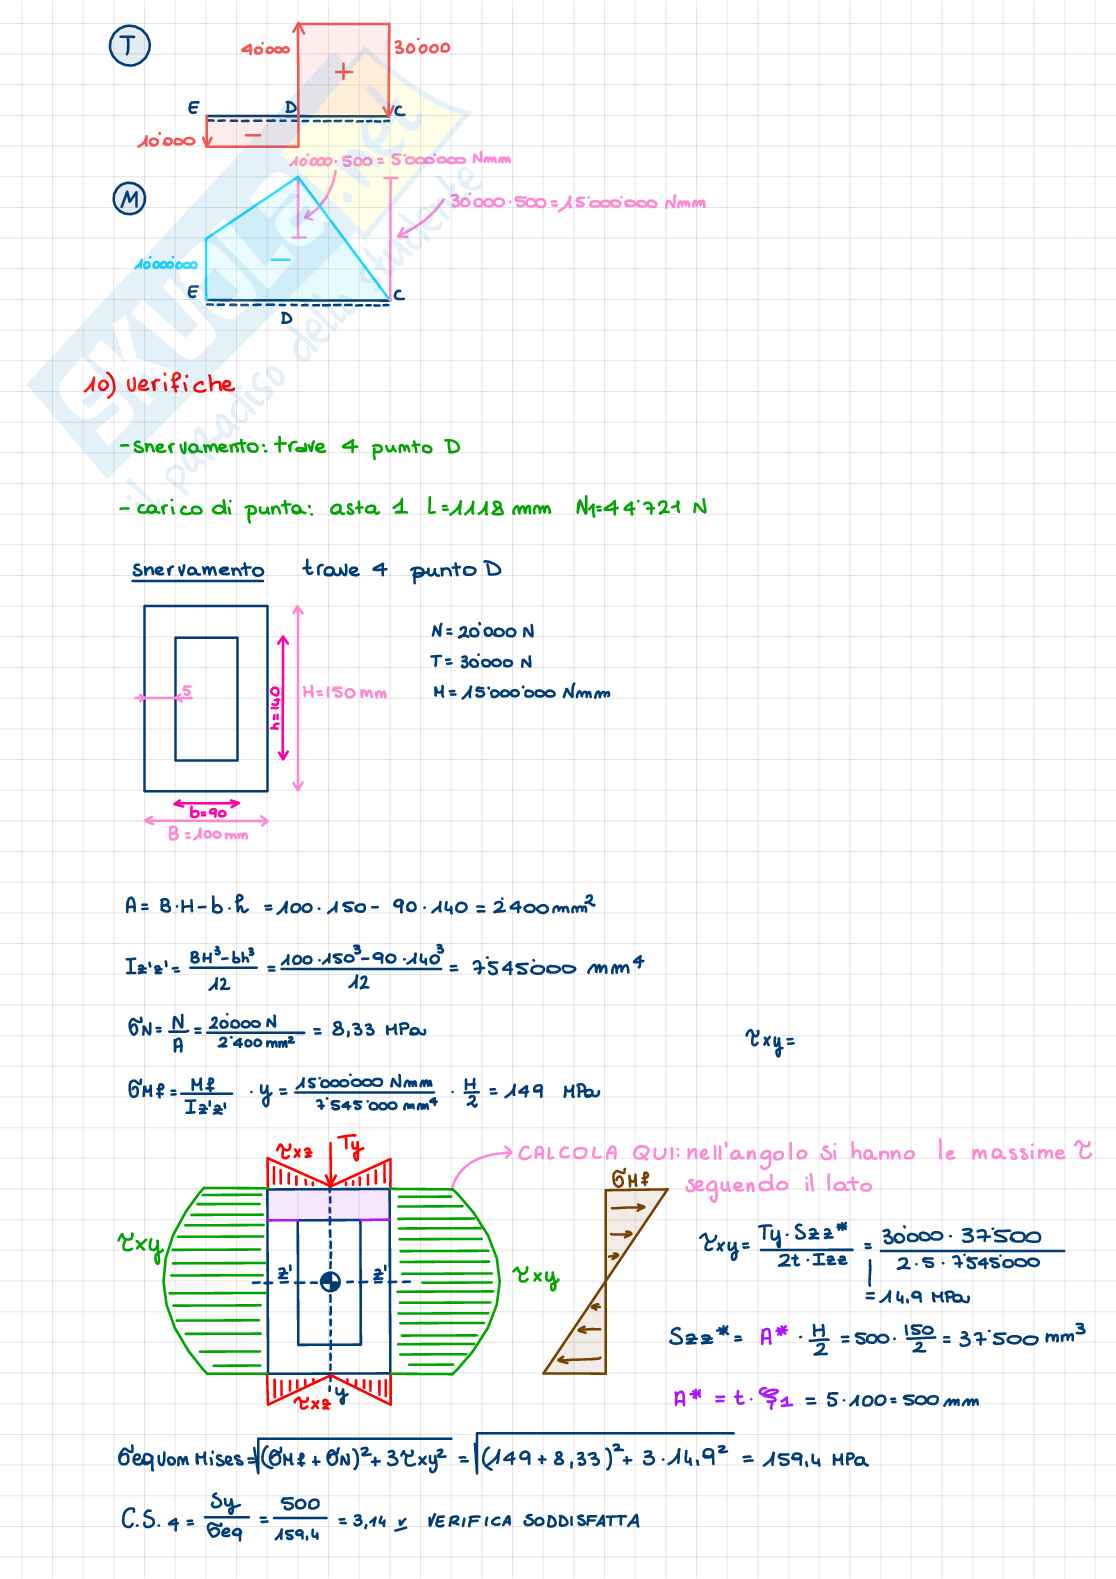 T
40'000
30'000
+
E D C
10'000
−
10'000·500 = 5'000'000 Nmm
M
30'000·500=15'000'000 Nmm
10'000'000
−
E C
D
SKUOLA.net
il paradiso dello studente
10) verifiche
-snervamento: trave 4 punto D
- carico di punta: asta 1 L=1118 mm N1=44'721 N
snervamento trave 4 punto D
N= 20'000 N
T= 30'000 N
M= 15'000'000 Nmm
5
h=140
H=150 mm
b=90
B=100 mm
A= B·H-b·h = 100·150- 90·140 = 2'400 mm²
Iz'z'= BH³-bh³/12 = 100·150³-90·140³/12 = 7'545'000 mm⁴
σN= N/A = 20'000 N/2'400 mm² = 8,33 MPa
τxy=
σMf= Mf/Iz'z' · y = 15'000'000 Nmm/7'545'000 mm⁴ · H/2 = 149 MPa
τxz Ty
CALCOLA QUI: nell'angolo si hanno le massime τ
seguendo il lato
σMf
τxy
z' z'
τxy
τxy= Ty·Szz*/2t·Izz = 30'000·37'500/2·5·7'545'000
= 14,9 MPa
Szz*= A*·H/2 = 500·150/2 = 37'500 mm³
τxz y
A* = t·ξ1 = 5·100=500 mm
σequom Mises=√(σMf+σN)²+3τxy² = √(149+8,33)²+3·14,9² = 159,4 MPa
C.S. 4 = Sy/σeq = 500/159,4 = 3,14 v VERIFICA SODDISFATTA